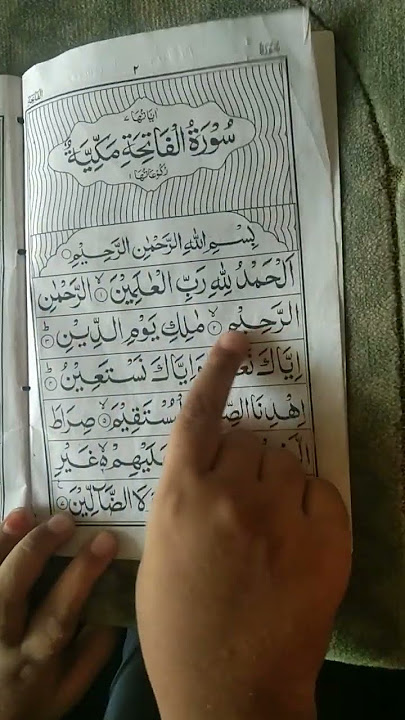 ٢
اٰیاتها ٧
سُوْرَةُ الْفَاتِحَةِ مَكِّيَّةٌ
رکوعاتها ١
بِسْمِ اللّٰهِ الرَّحْمٰنِ الرَّحِيْمِ
اَلْحَمْدُ لِلّٰهِ رَبِّ الْعٰلَمِيْنَ ۙ﴿١﴾ الرَّحْمٰنِ
الرَّحِيْمِ ۙ﴿٢﴾ مٰلِكِ يَوْمِ الدِّيْنِ ؕ﴿٣﴾
اِيَّاكَ وَاِيَّاكَ نَسْتَعِيْنُ ؕ﴿٤﴾
اِهْدِنَا الْمُسْتَقِيْمَ ۙ﴿٥﴾ صِرَاطَ
عَلَيْهِمْ ۙ۬ غَيْرِ
الضَّآلِّيْنَ